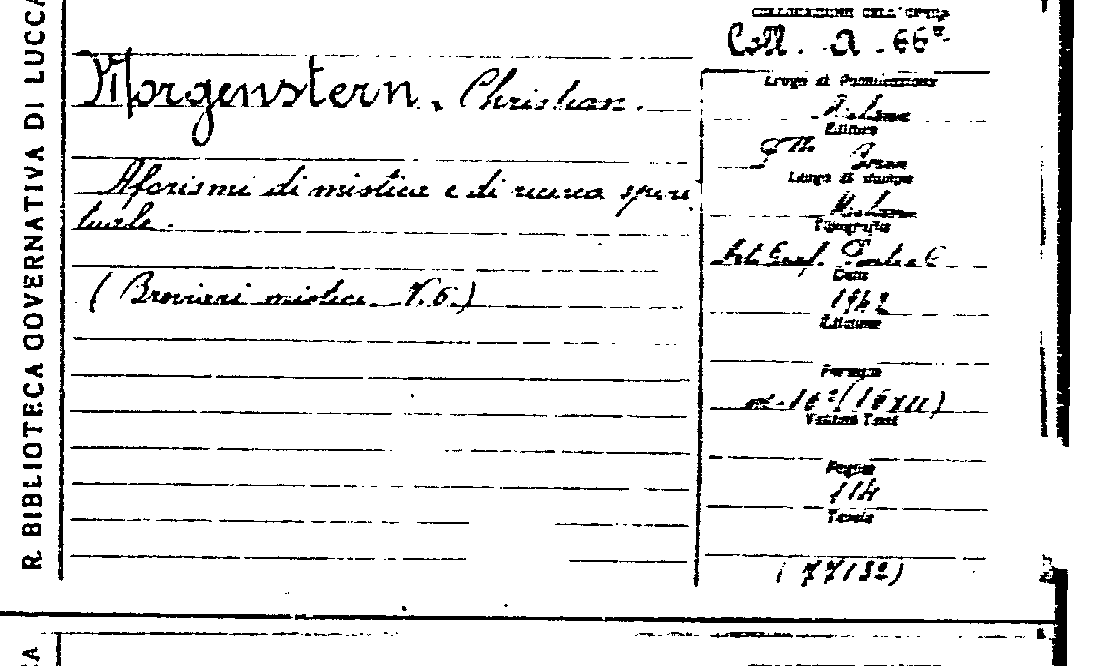 R. BIBLIOTECA GOVERNATIVA DI LUCCA
COLLOCAZIONE DELL'OPERA
Coll. a. 66
Morgenstern, Christian.
Aforismi di mistica e di ricerca spiri
tuale.
(Breviari mistica N. 6.)
Luogo di Pubblicazione
Milano
Editore
Luogo di stampa
Milano
Tipografia
Data
1942
Edizione
Formato
Volumi Tomi
Pagine
114
Tavole